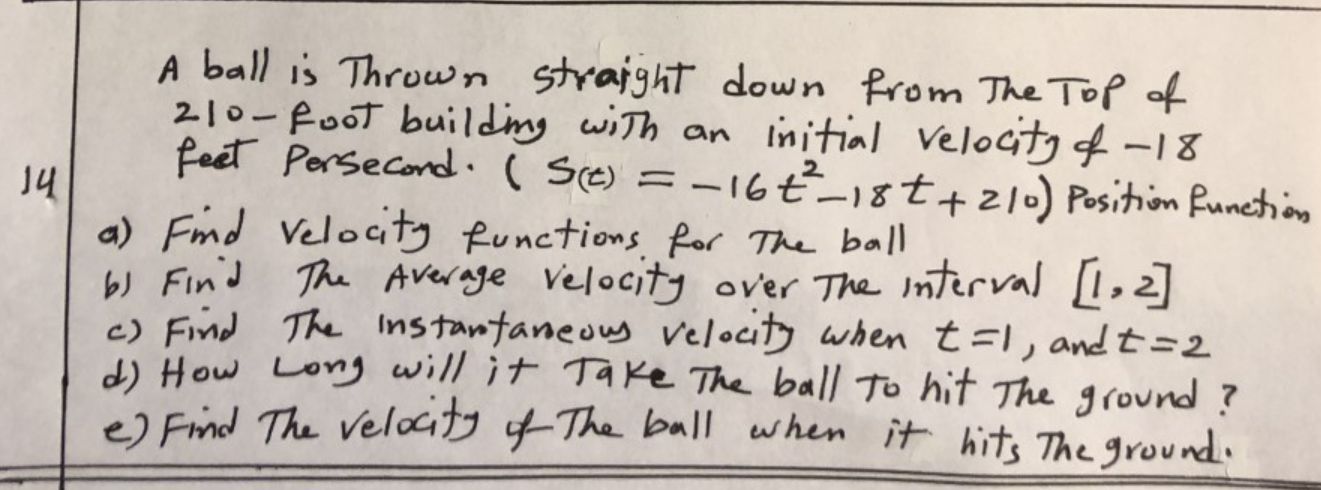 A ball is Thrown straight down from The Top of
210-foot building with an initial velocity of -18
14
feet Persecond. ( S(t) = -16t²-18t+210) Position function
a) Find velocity functions for The ball
b) Find The Average velocity over The interval [1,2]
c) Find The Instantaneous velocity when t=1, and t=2
d) How Long will it Take The ball To hit The ground?
e) Find The velocity of The ball when it hits The ground.